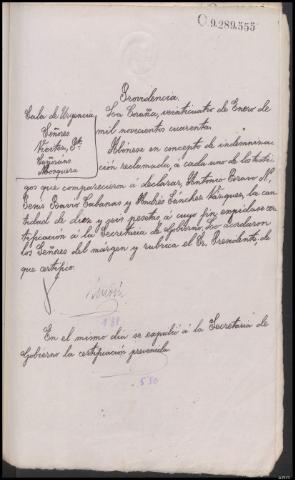 O.9.289.555
Providencia.
Sala de Urgencia
Señores
Viertes, Pte.
Cuñsano
Mosquera
La Coruña, veinticuatro de Enero de
mil novecientos cuarenta.
Abónese en concepto de indemniza-
ción reclamada, á cada uno de los testi-
gos que comparecieron á declarar, Antonio Bravo N,
Denis Pazos Cabanas y Andrés Sánchez Vázquez, la can-
tidad de diez y seis pesetas á cuyo fin, expídase cer-
tificación á la Secretaría de Gobierno. Lo acordaron
los Señores del margen y rubrica el Sr. Presidente, de
que certifico.
En el mismo día se expidió á la Secretaría de
Gobierno la certificación prevenida
530